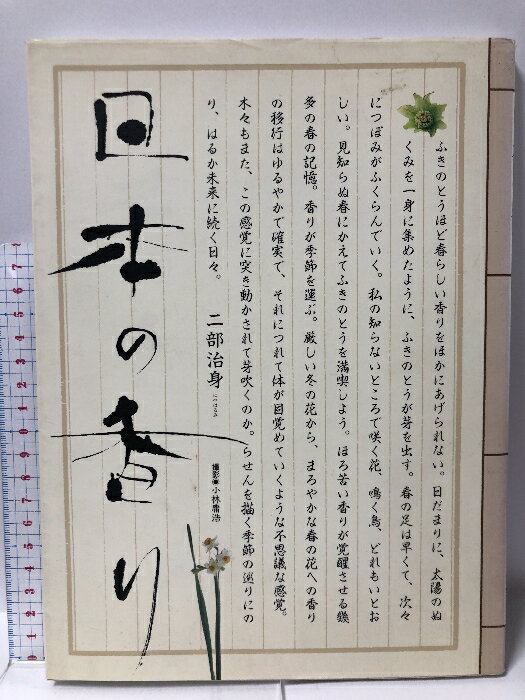 ふきのとうほど春らしい香りをほかにあげられない。日だまりに、太陽のぬ
くみを一身に集めたように、ふきのとうが芽を出す。春の足は早くて、次々
につぼみがふくらんでいく。私の知らないところで咲く花、鳴く鳥、どれもいとお
しい。見知らぬ春にかえてふきのとうを満喫しよう。ほろ苦い香りが覚醒させる幾
多の春の記憶。香りが季節を運ぶ。厳しい冬の花から、まろやかな春の花への香り
の移行はゆるやかで確実で、それにつれて体が目覚めていくような不思議な感覚。
木々もまた、この感覚に突き動かされて芽吹くのか。らせんを描く季節の巡りにの
り、はるか未来に続く日々。
二部治身
にべはるみ
撮影■小林庸浩
日本の香り